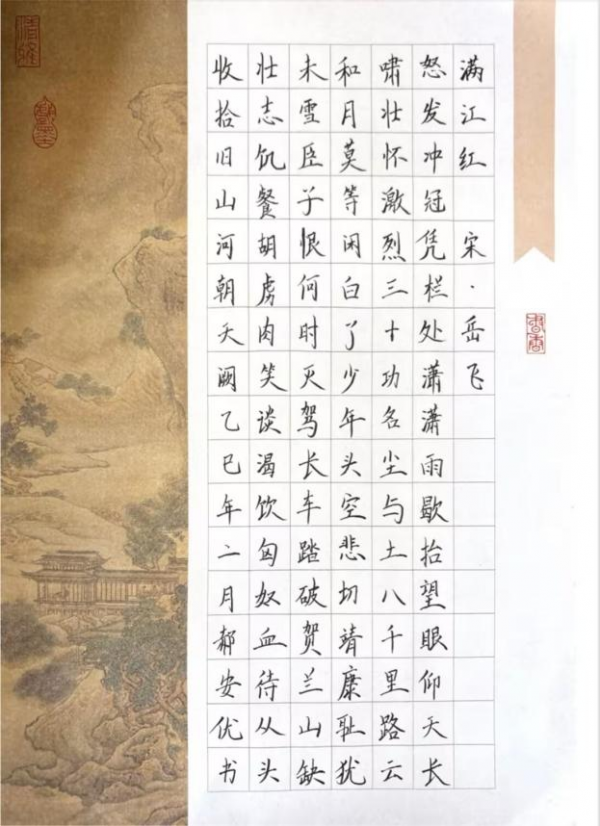 满江红 宋·岳飞
怒发冲冠凭栏处潇潇雨歇抬望眼仰天长
啸壮怀激烈三十功名尘与土八千里路云
和月莫等闲白了少年头空悲切靖康耻犹
未雪臣子恨何时灭驾长车踏破贺兰山缺
壮志饥餐胡虏肉笑谈渴饮匈奴血待从头
收拾旧山河朝天阙乙巳年二月郝安优书